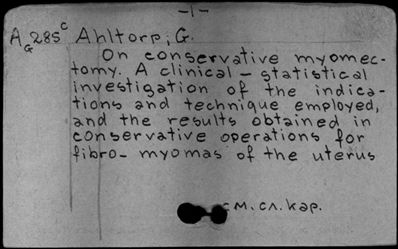 -1-
AG285c Ahltorp, G.
On conservative myomec-
tomy. A clinical - statistical
investigation of the indica-
tions and technique employed,
and the results obtained in
conservative operations for
fibro- myomas of the uterus
см. сл. кар.